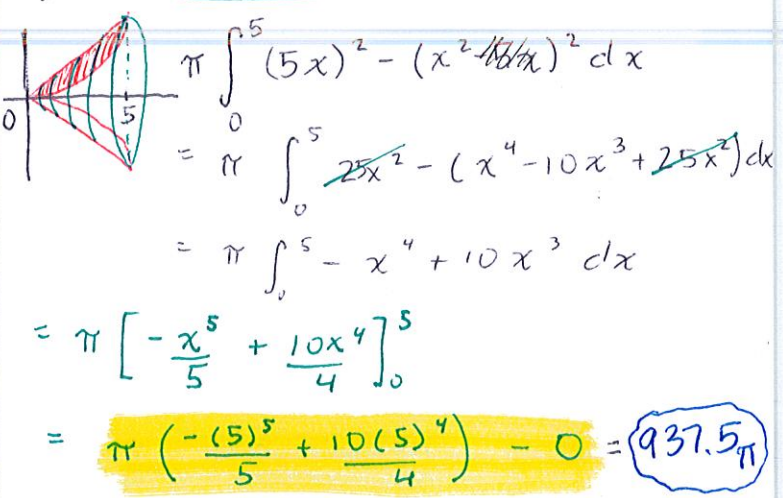 0 5
π ∫₀⁵ (5x)² - (x² )² dx
= π ∫₀⁵ 25x² - (x⁴ - 10x³ + 25x²) dx
= π ∫₀⁵ - x⁴ + 10x³ dx
= π [ - x⁵/5 + 10x⁴/4 ]₀⁵
= π ( -(5)⁵/5 + 10(5)⁴/4 ) - 0 = 937.5π